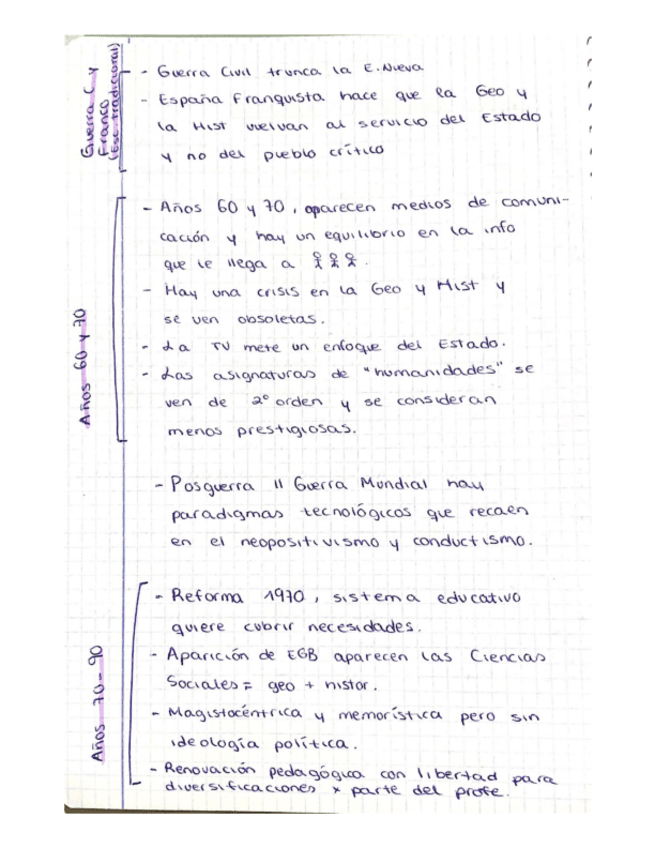 Guerra C y
Franco
(Esc tradicional)
- Guerra Civil trunca la E. Nueva
- España Franquista hace que la Geo y
la Hist vuelvan al servicio del Estado
y no del pueblo crítico
Años 60 y 70
- Años 60 y 70, aparecen medios de comuni-
cación y hay un equilibrio en la info
que le llega a
- Hay una crisis en la Geo y Hist y
se ven obsoletas.
- La TV mete un enfoque del Estado.
- Las asignaturas de "humanidades" se
ven de 2º orden y se consideran
menos prestigiosas.
- Posguerra II Guerra Mundial hay
paradigmas tecnológicos que recaen
en el neopositivismo y conductismo.
Años 70-90
- Reforma 1970, sistema educativo
quiere cubrir necesidades.
- Aparición de EGB aparecen las Ciencias
Sociales = geo + histor.
- Magistocéntrica y memorística pero sin
ideología política.
- Renovación pedagógica con libertad para
diversificaciones x parte del profe.